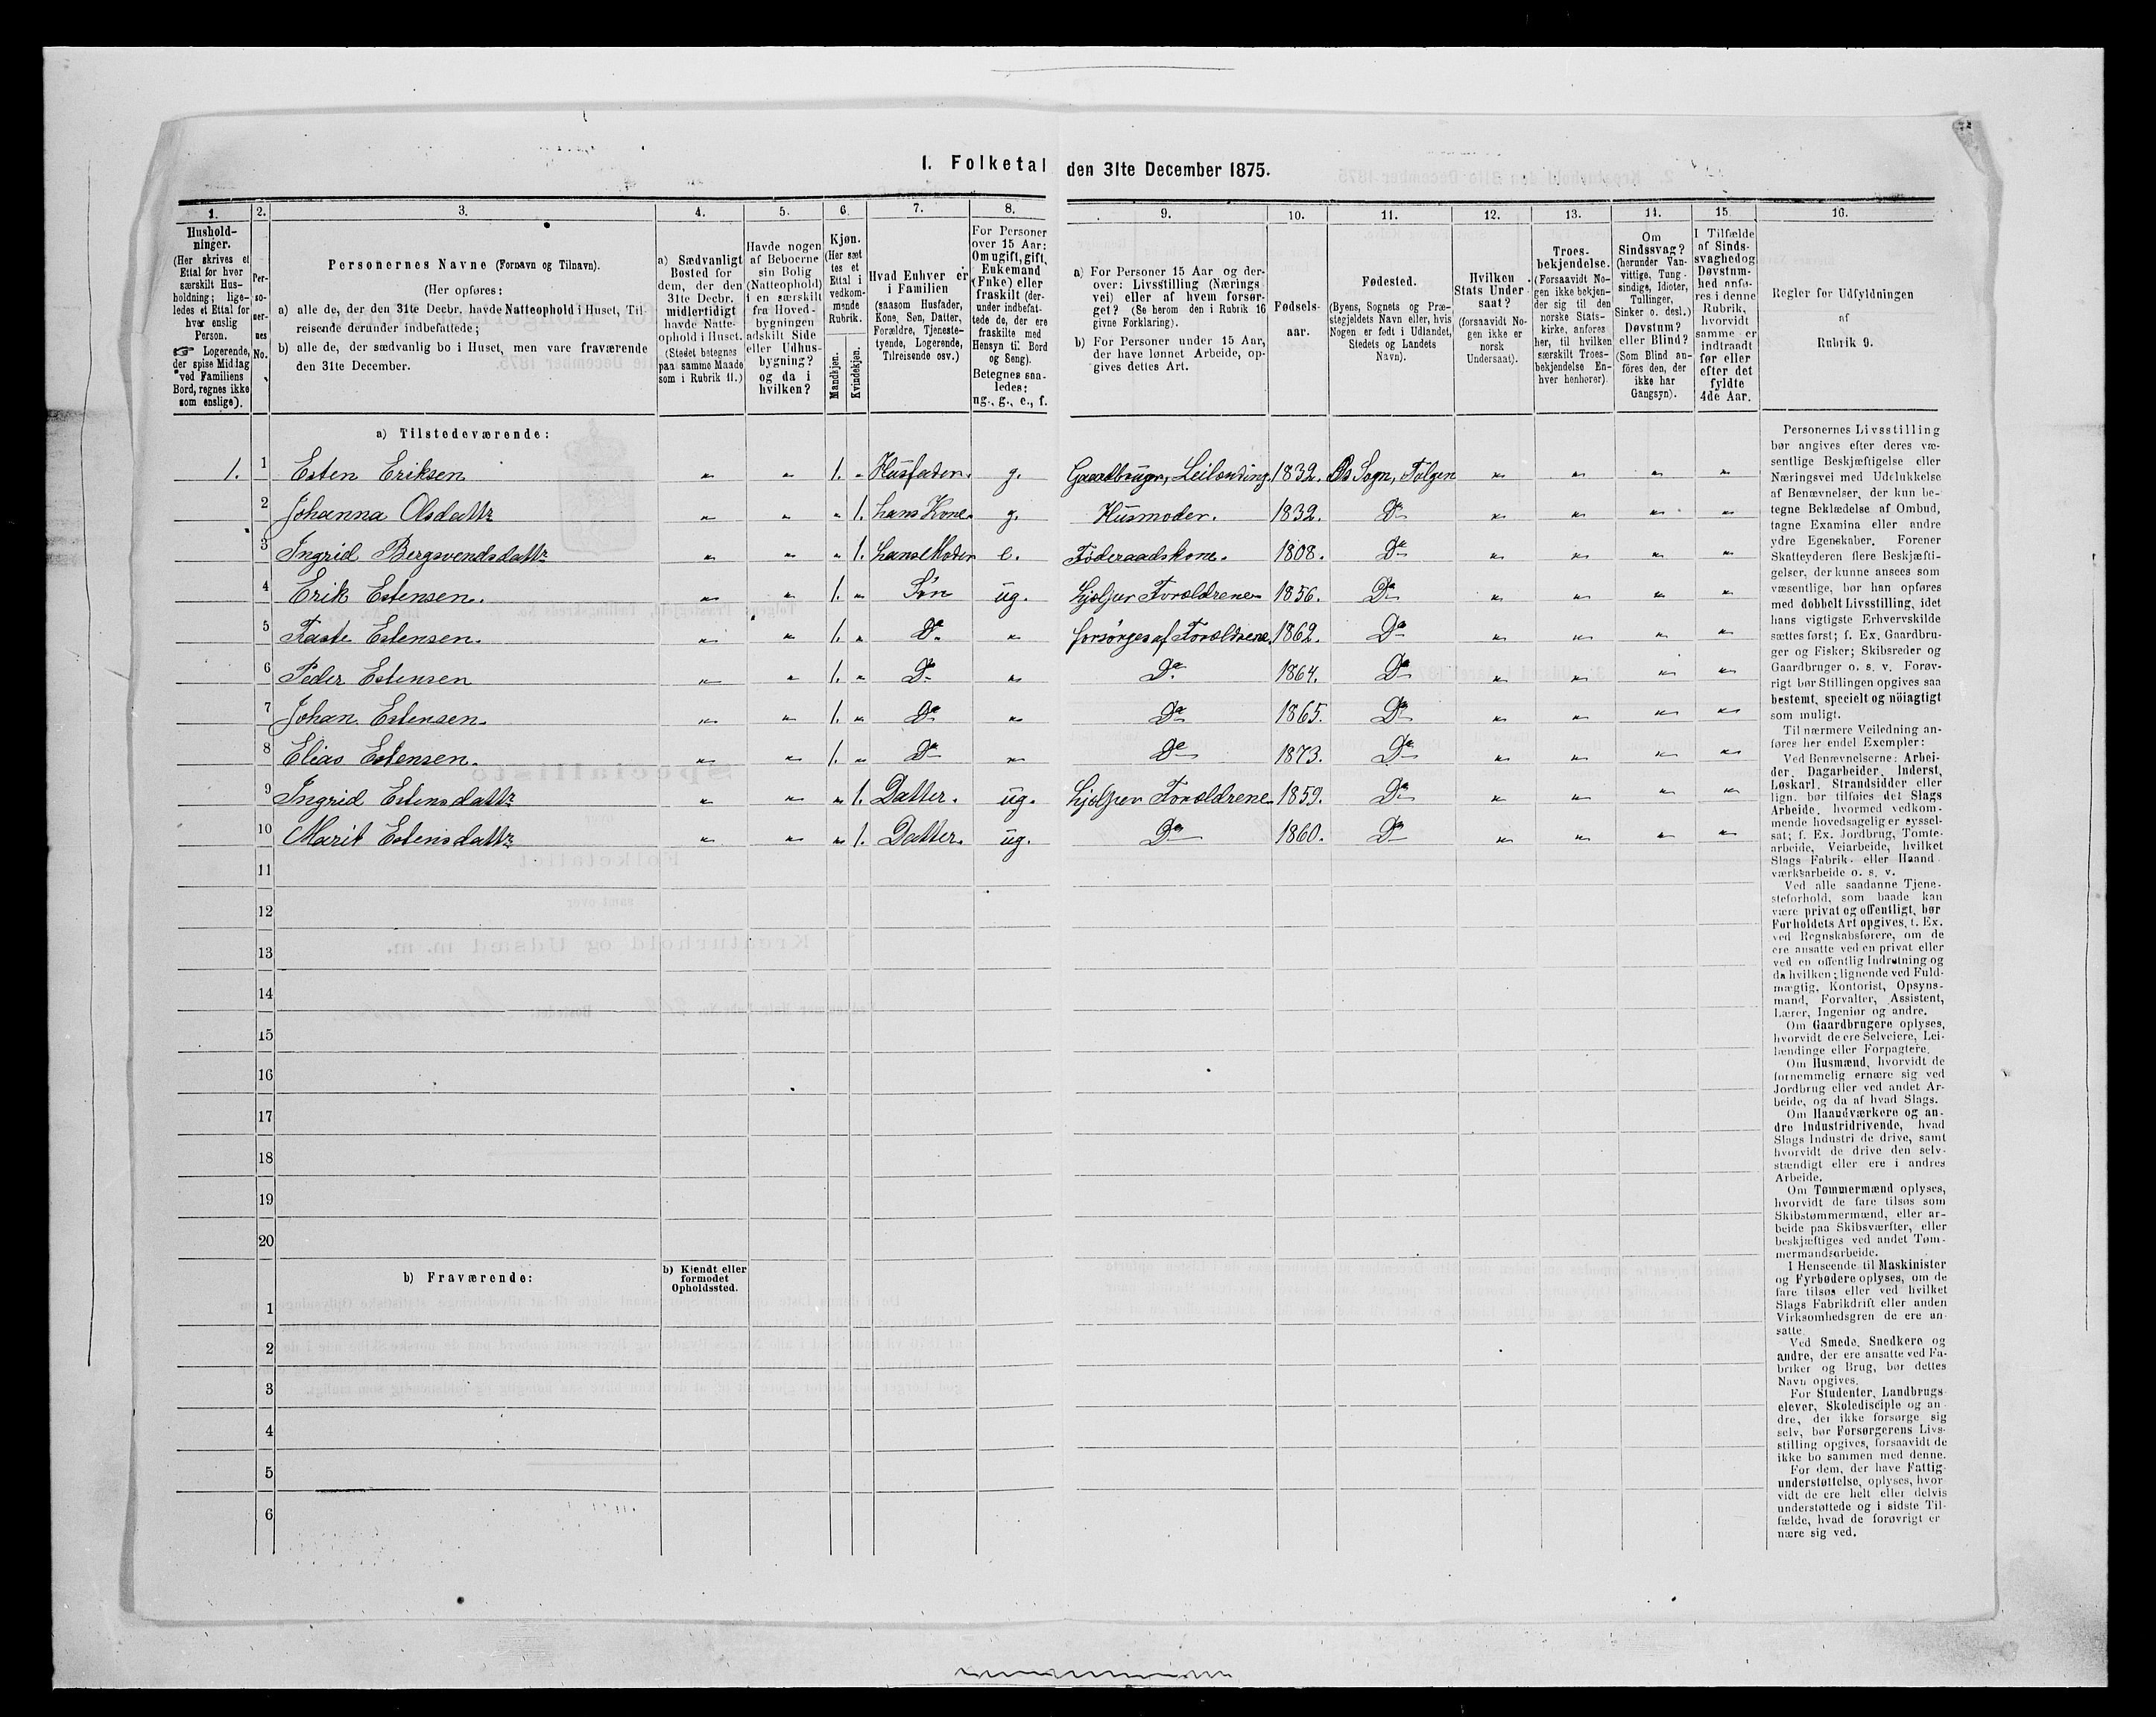 I. Folketal den 31te December 1875.
1. 2. 3. 4. 5. 6. 7. 8. 9. 10. 11. 12. 13. 14. 15. 16.
Hushold-
ninger.
(Her skrives et
Ettal for hver
særskilt Hus-
holdning; lige-
ledes et Ettal for
hver enslig
Person.
☞ Logerende,
der spise Middag
ved Familiens
Bord, regnes ikke
som enslige).
Per-
so-
ner-
nes
No.
Personernes Navne (Fornavn og Tilnavn).
(Her opføres:
a) alle de, der den 31te Decbr. havde Natteophold i Huset, Til-
reisende derunder indbefattede;
b) alle de, der sædvanlig bo i Huset, men vare fraværende
den 31te December.
a) Sædvanligt
Bosted for
dem, der den
31te Decbr.
midlertidigt
havde Natte-
ophold i Huset.
(Stedet betegnes
paa samme Maade
som i Rubrik 11.)
Havde nogen
af Beboerne
sin Bolig
(Natteophold)
i en særskilt
fra Hoved-
bygningen
adskilt Side
eller Udhus-
bygning?
og da i
hvilken?
Kjøn.
(Her sæt
tes et
Ettal i
vedkom-
mende
Rubrik.
Mandkjøn.
Kvindekjøn.
Hvad Enhver er
i Familien
(saasom Husfader,
Kone, Søn, Datter,
Forældre, Tjeneste-
tyende, Logerende,
Tilreisende osv.)
For Personer
over 15 Aar:
Om ugift, gift,
Enkemand
(Enke) eller
fraskilt (der-
under indbefat-
tede de, der ere
fraskilte med
Hensyn til Bord
og Seng).
Betegnes saa-
ledes:
ug., g., e., f.
a) For Personer 15 Aar og der-
over: Livsstilling (Nærings
vei) eller af hvem forsør-
get? (Se herom den i Rubrik 16
givne Forklaring).
b) For Personer under 15 Aar,
der have lønnet Arbeide, op-
gives dettes Art.
Fødsels-
aar.
Fødested.
(Byens, Sognets og Præ-
stegjeldets Navn eller, hvis
Nogen er født i Udlandet,
Stedets og Landets
Navn).
Hvilken
Stats Under-
saat?
(forsaavidt No-
gen ikke er
norsk
Undersaat).
Troes-
bekjendelse.
(Forsaavidt No-
gen ikke bekjen-
der sig til den
norske Stats-
kirke, anføres
her, til hvilken
særskilt Troes-
bekjendelse En-
hver henhører).
Om
Sindssvag?
(herunder Van-
vittige, Tung-
sindige, Idioter,
Tullinger,
Sinker o. desl.)
Døvstum?
eller Blind?
(Som Blind an-
føres den, der
ikke har
Gangsyn).
I Tilfælde
af Sinds-
svaghed og
Døvstum-
hed anfø-
res i denne
Rubrik,
hvorvidt
samme er
indtraadt
før eller
efter det
fyldte
4de Aar.
Regler for Udfyldningen
af
Rubrik 9.
a) Tilstedeværende:
1. 1 Esten Eriksen " " 1. " Husfader. g. Gaardbruger, Leilænding. 1832. Os Sogn, Tolgen " " " "
2 Johanna Olsdattr " " " 1. hans Kone. g. Husmoder. 1832. Do " " " "
3 Ingrid Bergsvendsdattr " " " 1. hans Moder e. Føderaadskone. 1808. Do " " " "
4 Erik Estensen. " " 1. " Søn ug. hjælper Forældrene 1856. Do " " " "
5 Faste Estensen. " " 1. " Do " forsørges af Forældrene. 1862. Do " " " "
6 Peder Estensen " " 1. " Do " Do 1864. Do " " " "
7 Johan Estensen. " " 1. " Do " Do 1865. Do " " " "
8 Elias Estensen. " " 1. " Do " Do 1873. Do " " " "
9 Ingrid Estensdattr " " " 1. Datter. ug. hjælper Forældrene 1859. Do " " " "
10 Marit Estensdattr " " " 1. Datter. ug. Do 1860. Do " " " "
11
12
13
14
15
16
17
18
19
20
b) Fraværende:
b) Kjendt eller
formodet
Opholdssted.
1
2
3
4
5
6
Personernes Livsstilling
bør angives efter deres væ-
sentlige Beskjæftigelse eller
Næringsvei med Udelukkelse
af Benævnelser, der kun be-
tegne Beklædelse af Ombud,
tagne Examina eller andre
ydre Egenskaber. Forener
Skatteyderen flere Beskjæfti-
gelser, der kunne ansees som
væsentlige, bør han opføres
med dobbelt Livsstilling, idet
hans vigtigste Erhvervskilde
sættes først; f. Ex. Gaardbru-
ger og Fisker; Skibsreder og
Gaardbruger o. s. v. Forøv-
rigt bør Stillingen opgives saa
bestemt, specielt og nöiagtigt
som muligt.
Til nærmere Veiledning an-
føres her endel Exempler:
Ved Benævnelserne: Arbei-
der, Dagarbeider, Inderst,
Løskarl, Strandsidder eller
lign. bør tilføies det Slags
Arbeide, hvormed vedkom-
mende hovedsagelig er syssel-
sat; f. Ex. Jordbrug, Tomte-
arbeide, Veiarbeide, hvilket
Slags Fabrik- eller Haand-
værksarbeide o. s. v.
Ved alle saadanne Tjene-
steforhold, som baade kan
være privat og offentligt, bør
Forholdets Art opgives, f. Ex.
ved Regnskabsførere, om de
ere ansatte ved en privat eller
ved en offentlig Indretning og
da hvilken; lignende ved Fuld-
mægtig, Kontorist, Opsyns-
mand, Forvalter, Assistent,
Lærer, Ingeniør og andre.
Om Gaardbrugere oplyses,
hvorvidt de ere Selveiere, Lei-
lændinge eller Forpagtere.
Om Husmænd, hvorvidt de
fornemmelig ernære sig ved
Jordbrug eller ved andet Ar-
beide, og da af hvad Slags.
Om Haandværkere og an-
dre Industridrivende, hvad
Slags Industri de drive, samt
hvorvidt de drive den selv-
stændigt eller ere i andres
Arbeide.
Om Tømmermænd oplyses,
hvorvidt de fare tilsøs som
Skibstømmermænd, eller ar-
beide paa Skibsværfter, eller
beskjæftiges ved andet Tøm-
mermandsarbeide.
I Henseende til Maskinister
og Fyrbødere oplyses, om de
fare tilsøs eller ved hvilket
Slags Fabrikdrift eller anden
Virksomhedsgren de ere an-
satte.
Ved Smede, Snedkere og
andre, der ere ansatte ved Fa-
briker og Brug, bør dettes
Navn opgives.
For Studenter, Landbrugs-
elever, Skoledisciple og an-
dre, der ikke forsørge sig
selv, bør Forsørgerens Livs-
stilling opgives, forsaavidt de
ikke bo sammen med denne.
For dem, der have Fattig-
understøttelse, oplyses, hvor-
vidt de ere helt eller delvis
understøttede og i sidste Til-
fælde, hvad de forøvrigt er-
nære sig ved.